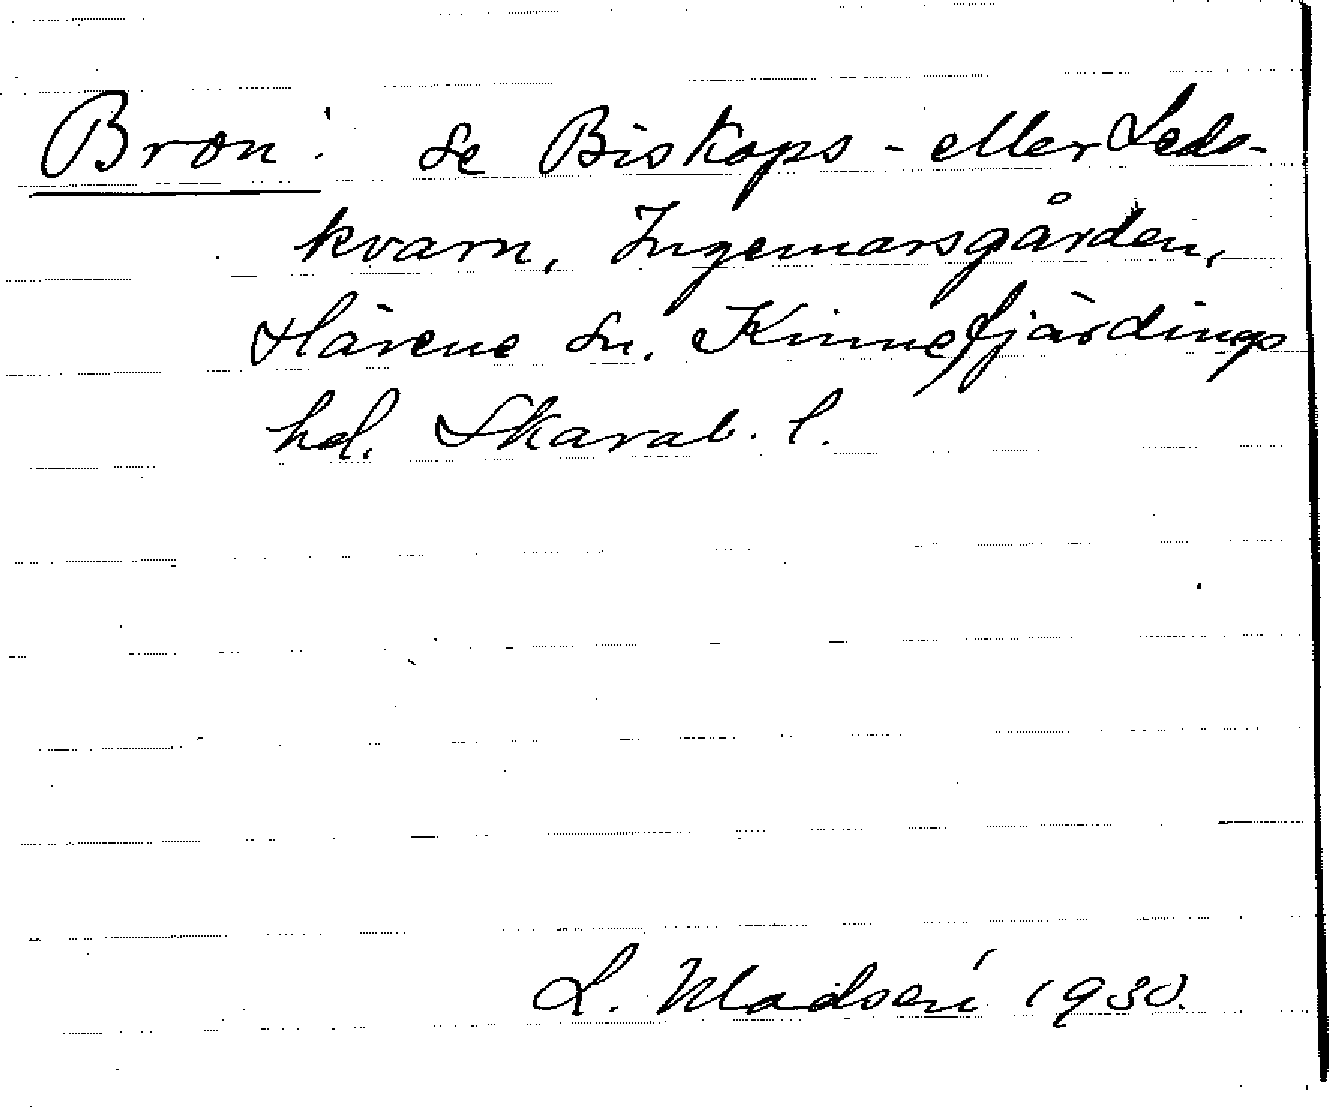 Bron: se Biskops- eller Leds-
kvarn, Ingemarsgården,
Härene sn. Kinnefjärdings
hd. Skarab. l.
L. Madsén 1930.